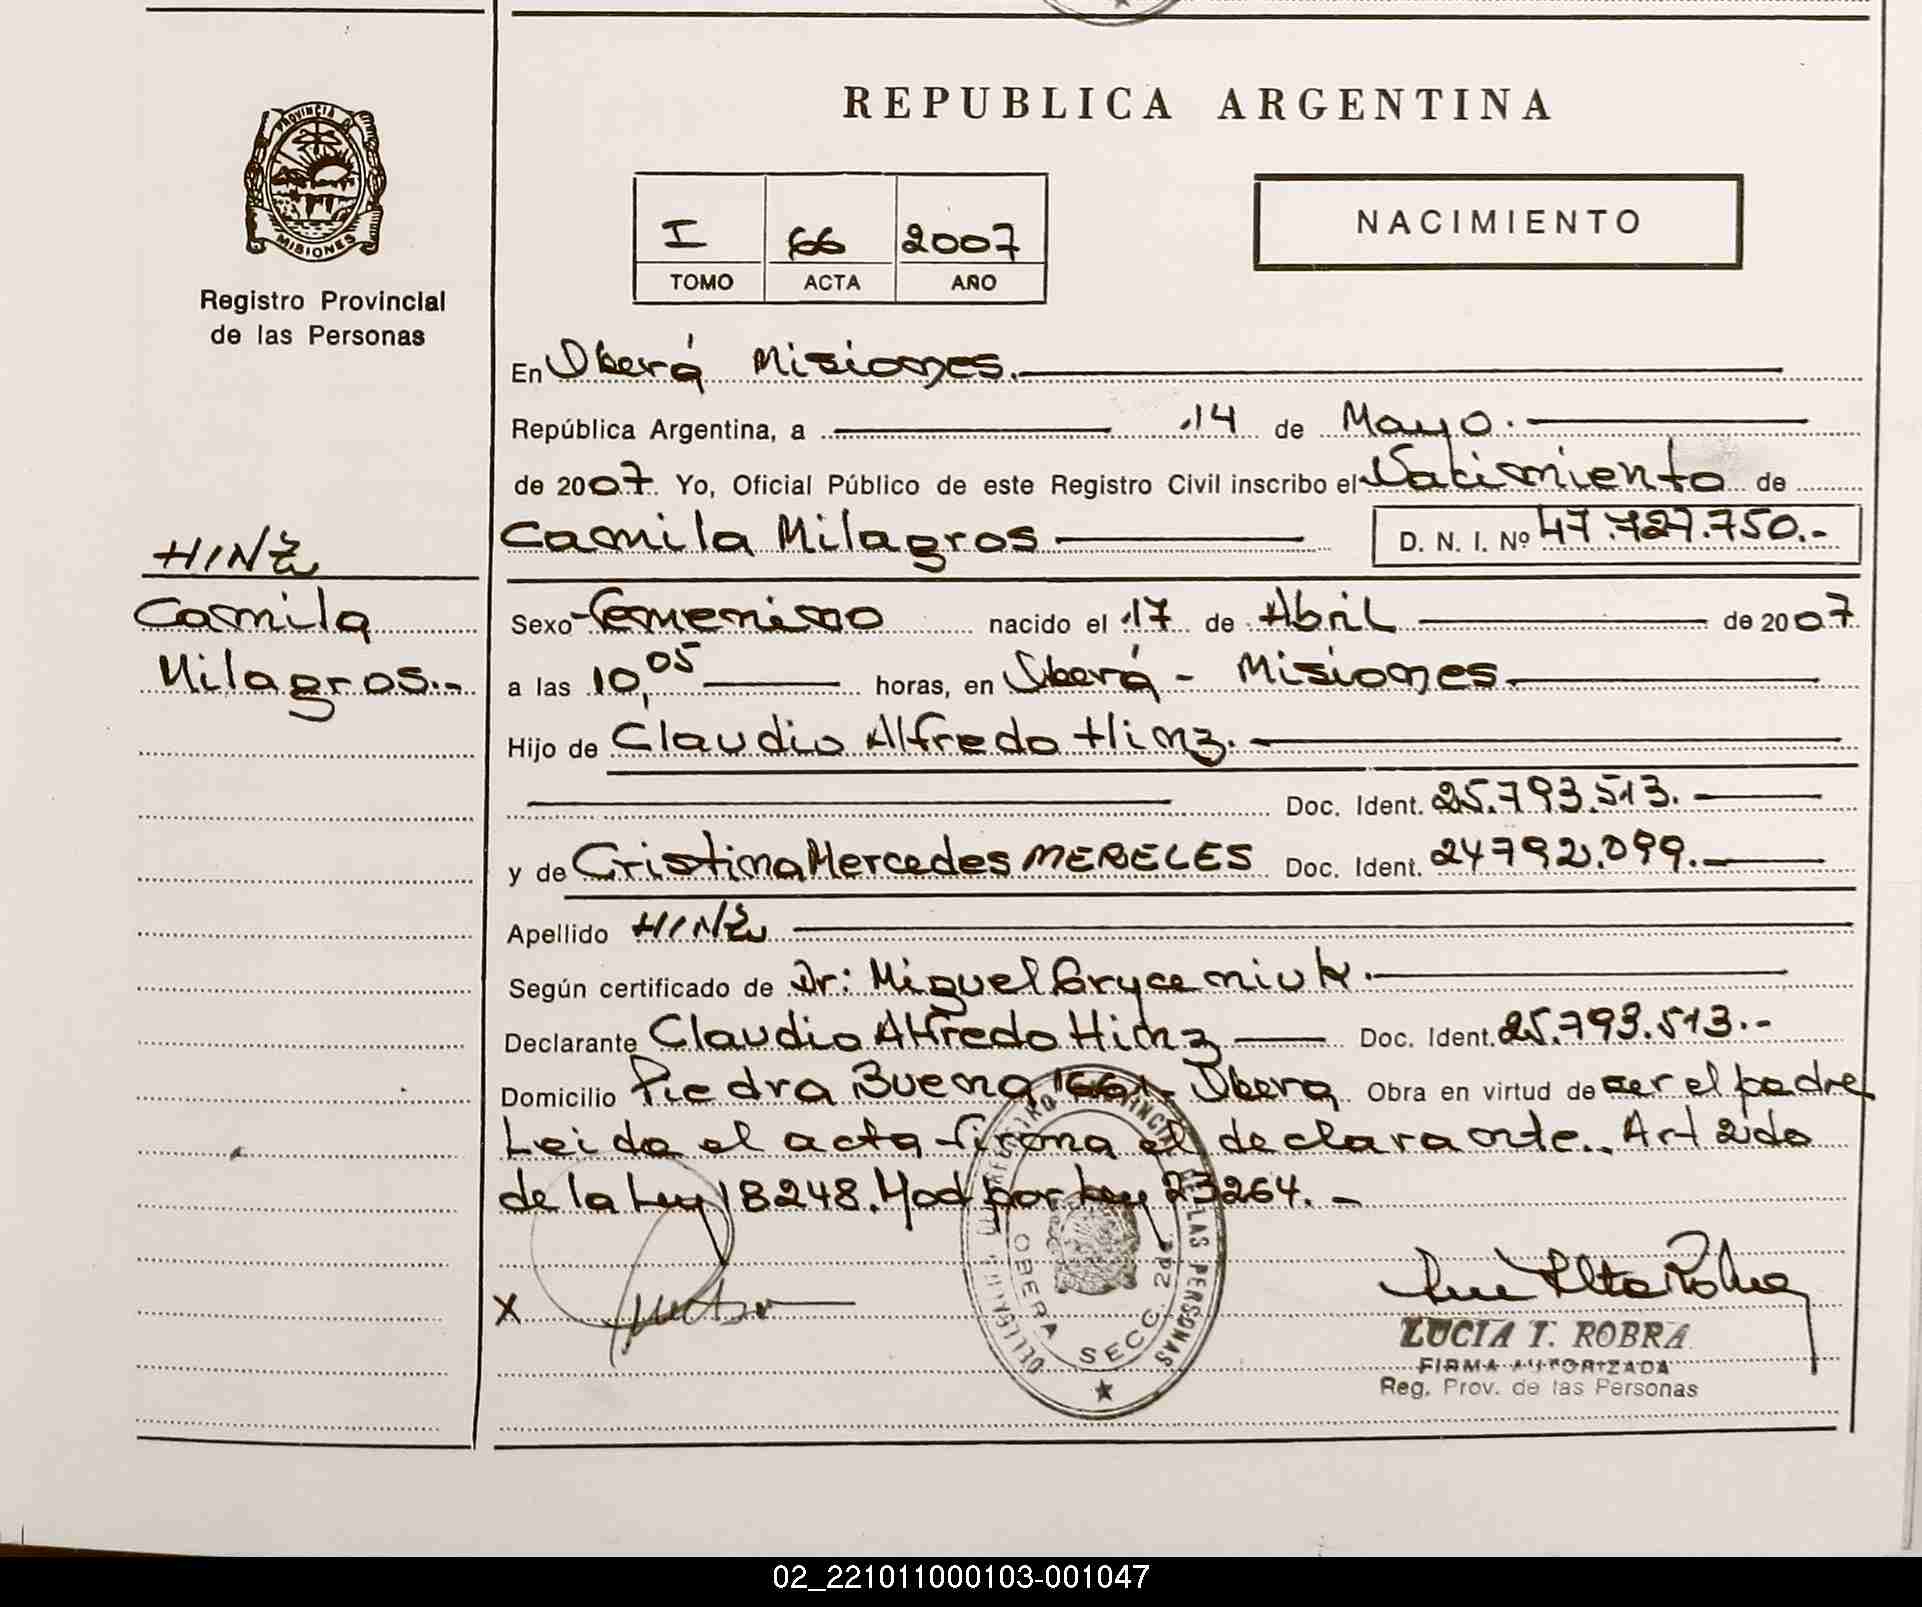 PROVINCIA D
MISIONES
Registro Provincial
de las Personas
HINZ
Camila
Milagros.-
REPUBLICA ARGENTINA
I 66 2007
TOMO ACTA AÑO
NACIMIENTO
En Oberá Misiones.
República Argentina, a 14 de Mayo.
de 2007. Yo, Oficial Público de este Registro Civil inscribo el Nacimiento de
Camila Milagros D. N. I. Nº 47.727.750.-
Sexo femenino nacido el 17 de Abril de 2007
a las 10,05 horas, en Oberá - Misiones
Hijo de Claudio Alfredo Hinz.
Doc. Ident. 25.793.513.
y de Cristina Mercedes MERELES Doc. Ident. 24792.099.
Apellido HINZ
Según certificado de Dr: Miguel Gryceniuk.
Declarante Claudio Alfredo Hinz Doc. Ident. 25.793.513.-
Domicilio Piedra Buena 661. Obera Obra en virtud de ser el padre
Leida el acta firma el declarante.. Art 2do
de la Ley 18248. Mod por Ley 23264.-
X
OBERA SECC. 2da
DE LAS PERSONAS
LUCIA I. ROBRA
FIRMA AUTORIZADA
Reg. Prov. de las Personas
02_221011000103-001047